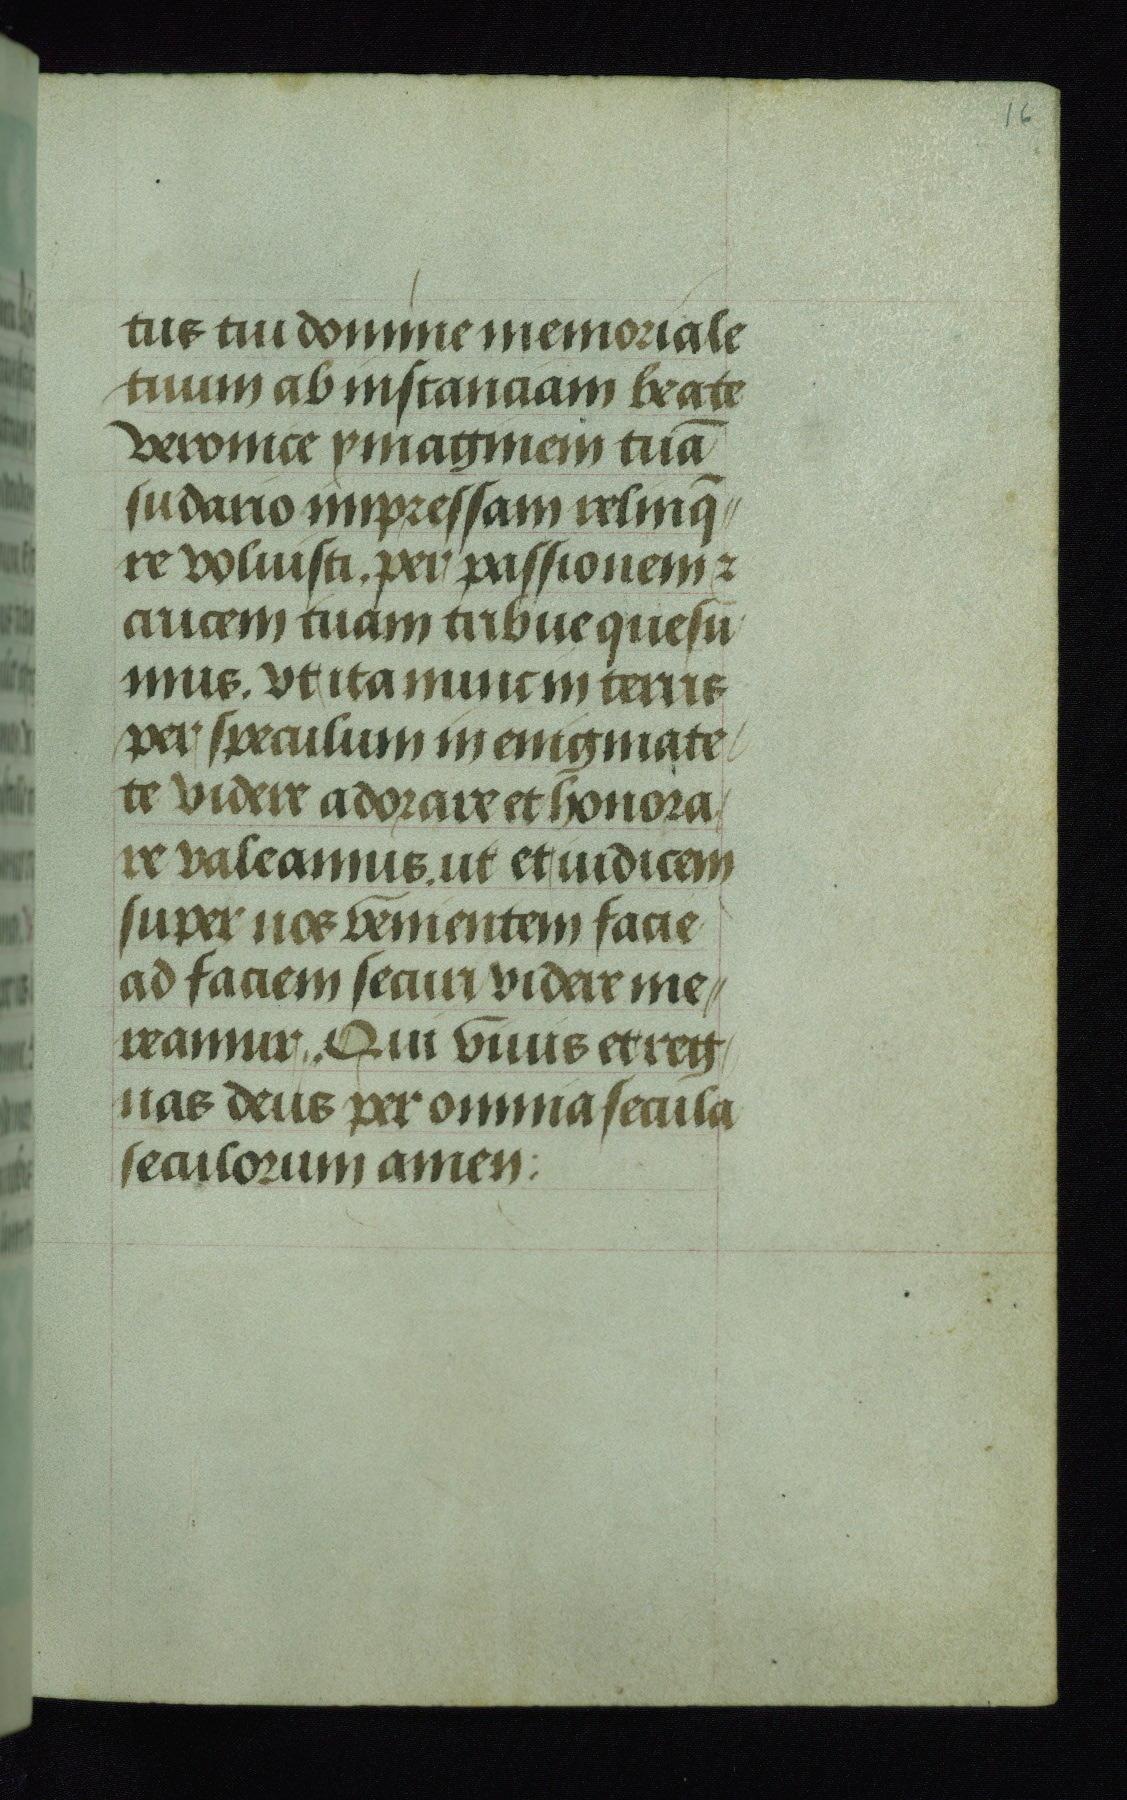 16
tus tui domine memoriale
tuum ab instanciam beate
veronice ymaginem tuā
sudario impressam relinq̄
re voluisti. per passionem ⁊
crucem tuam tribue quesu
mus. vt ita nunc in terris
per speculum in enigmate
te videre adorare et honora
re valeamus. ut et iudicem
super nos venientem facie
ad faciem securi videre me
reamur. Qui viuis et reg
nas deus per omnia secula
seculorum amen: